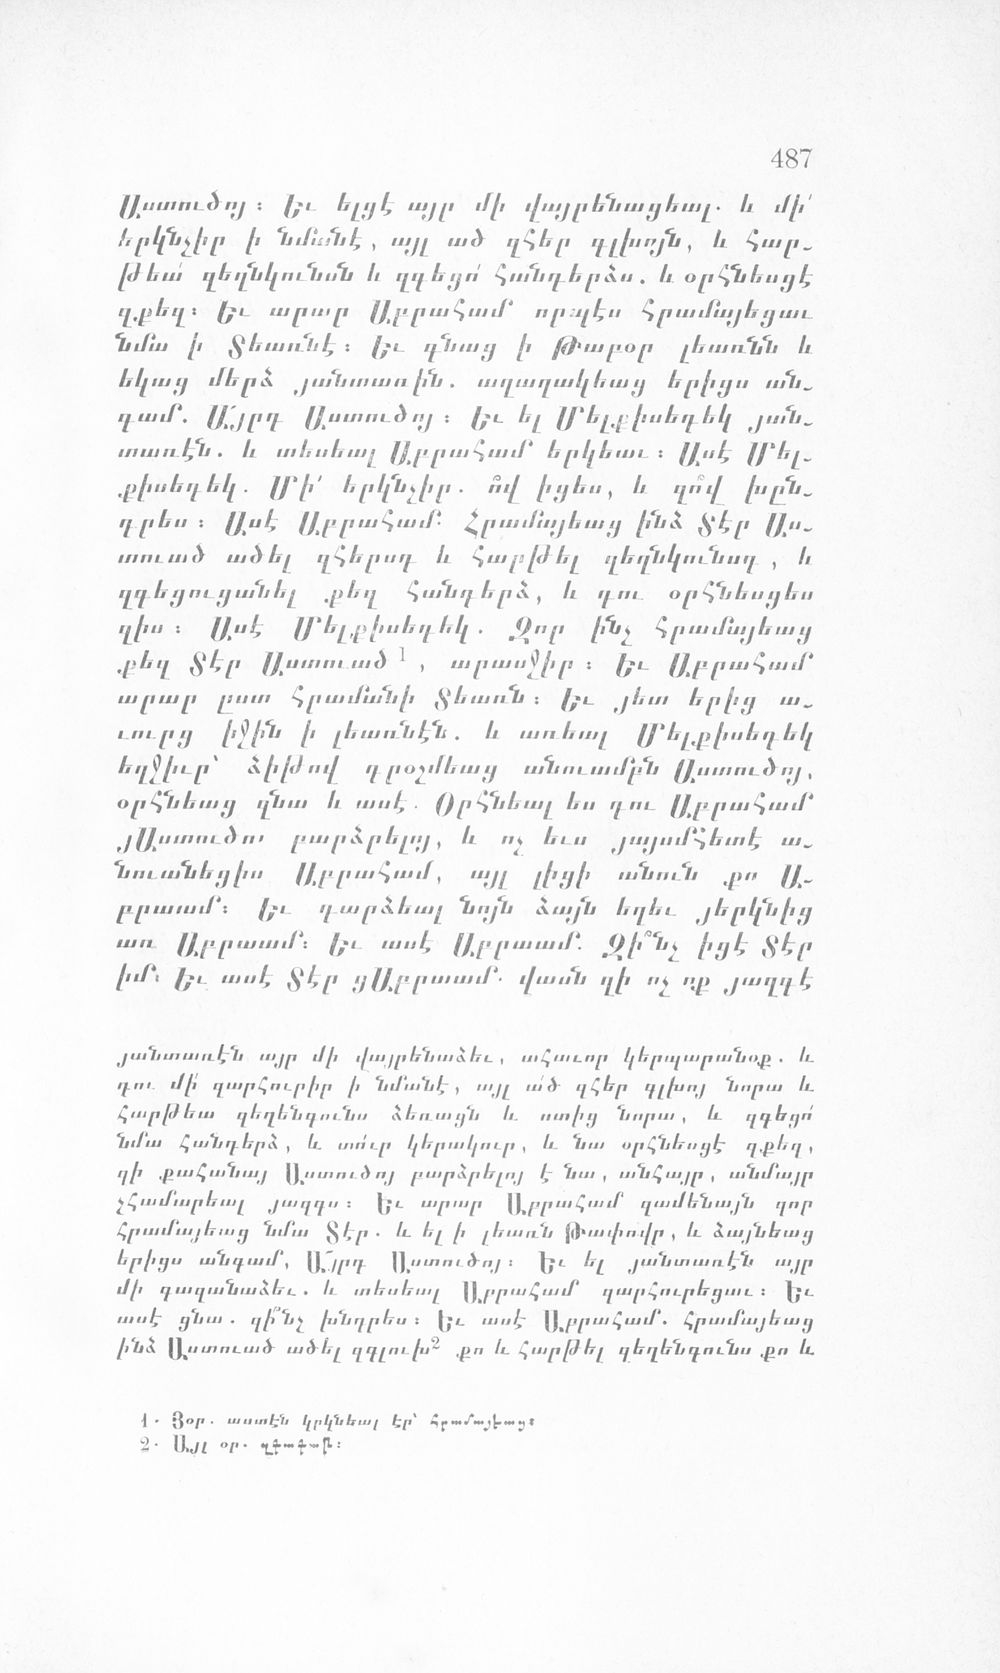 487
Աստուծոյ։ Եւ ելցէ այր մի վայրենացեալ. և մի՛
երկնչիր ի նմանէ, այլ ած զհեր գլխոյն, և հար֊
թեա՛ զեղնկունսն և զգեցո՛ հանդերձս. և օրհնեսցէ
զքեզ։ Եւ արար Աբրահամ որպէս հրամայեցաւ
նմա ի Տեառնէ։ Եւ գնաց ի Թաբօր լեառնն և
եկաց մերձ յանտառին. աղաղակեաց երիցս ան֊
գամ. Ա՜յրդ Աստուծոյ։ Եւ ել Մելքիսեդեկ յան֊
տառէն. և տեսեալ Աբրահամ երկեաւ։ Ասէ Մել֊
քիսեդեկ. Մի՛ երկնչիր. ո՞վ իցես, և զո՞վ խըն֊
դրես։ Ասէ Աբրահամ. Հրամայեաց ինձ Տէր Աս֊
տուած ածել զհերսդ և հարթել զեղնկունսդ, և
զգեցուցանել քեզ հանդերձ, և դու օրհնեսցես
զիս։ Ասէ Մելքիսեդեկ. Զոր ինչ հրամայեաց
քեզ Տէր Աստուած 1, արասջիր։ Եւ Աբրահամ
արար ըստ հրամանի Տեառն։ Եւ յետ երից ա֊
ւուրց իջին ի լեառնէն. և առեալ Մելքիսեդեկ
եղջիւր՝ ձիթով դրօշմեաց անուամբն Աստուծոյ,
օրհնեաց զնա և ասէ. Օրհնեալ ես դու Աբրահամ
յԱստուծոյ բարձրելոյ, և ոչ ևս յայսմհետէ ա֊
նուանեցիս Աբրահամ, այլ լիցի անուն քո Ա֊
բրաամ։ Եւ դարձեալ նոյն ձայն եղեւ յերկնից
առ Աբրաամ։ Եւ ասէ Աբրաամ. Զի՞նչ իցէ Տէր
իմ։ Եւ ասէ Տէր ցԱբրաամ. վասն զի ոչ ոք յազգէ
յանտառէն այր մի վայրենաձեւ, ահաւոր կերպարանօք. և
դու մի՛ զարհուրիր ի նմանէ, այլ ա՛ծ զհեր գլխոյ նորա և
հարթեա զեղենգունս ձեռացն և ոտից նորա, և զգեցո՛
նմա հանդերձ, և տո՛ւր կերակուր, և նա օրհնեսցէ զքեզ,
զի քահանայ Աստուծոյ բարձրելոյ է նա, անհայր, անմայր
չհամարեալ յազգս։ Եւ արար Աբրահամ զամենայն զոր
հրամայեաց նմա Տէր. և ել ի լեառն Թափովր, և ձայնեաց
երիցս անգամ, Ա՜յրդ Աստուծոյ։ Եւ ել յանտառէն այր
մի գազանաձեւ. և տեսեալ Աբրահամ զարհուրեցաւ։ Եւ
ասէ ցնա. զի՞նչ խնդրես։ Եւ ասէ Աբրահամ. հրամայեաց
ինձ Աստուած ածել զգլուխ2 քո և հարթել զեղենգունս քո և
1. Յօր. աստէն կրկնեալ էր՝ հրամայեաց։
2. Այլ օր. զփափար։